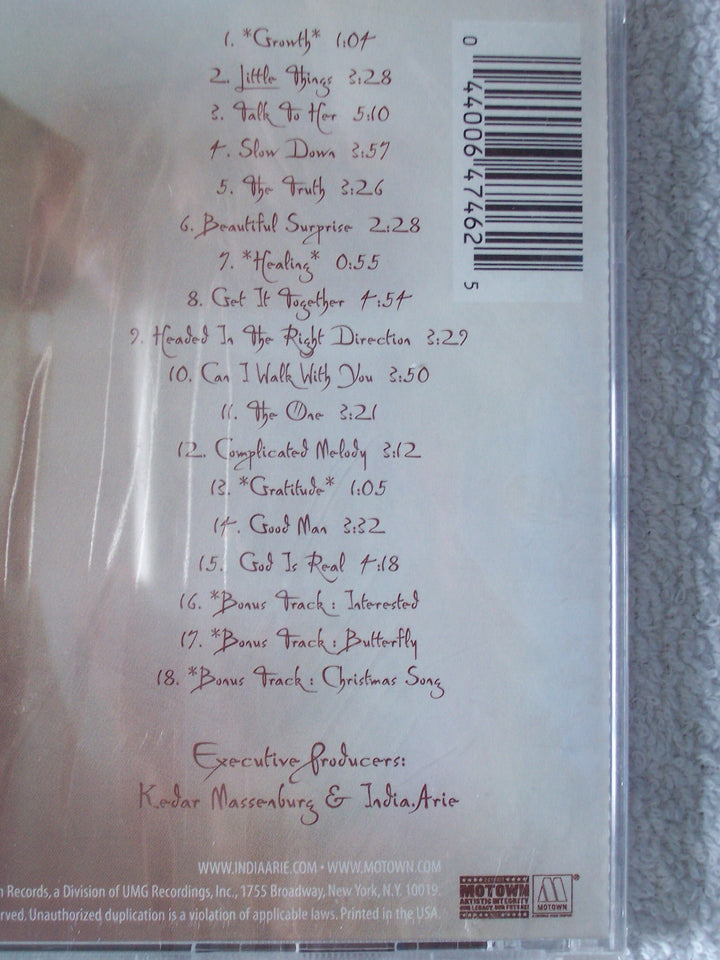 1. *Growth* 1:04
2. Little Things 3:28
3. Talk To Her 5:10
4. Slow Down 3:57
5. The Truth 3:26
6. Beautiful Surprise 2:28
7. *Healing* 0:55
8. Get It Together 4:54
9. Headed In The Right Direction 3:29
10. Can I Walk With You 3:50
11. The One 3:21
12. Complicated Melody 3:12
13. *Gratitude* 1:05
14. Good Man 3:32
15. God Is Real 4:18
16. *Bonus Track: Interested
17. *Bonus Track: Butterfly
18. *Bonus Track: Christmas Song
Executive Producers:
Kedar Massenburg & India.Arie
WWW.INDIAARIE.COM • WWW.MOTOWN.COM
n Records, a Division of UMG Recordings, Inc., 1755 Broadway, New York, N.Y. 10019.
rved. Unauthorized duplication is a violation of applicable laws. Printed in the USA.
0 44006 47462 5
MOTOWN
ARTISTIC INTEGRITY
OUR LEGACY, OUR FUTURE
M
MOTOWN
®